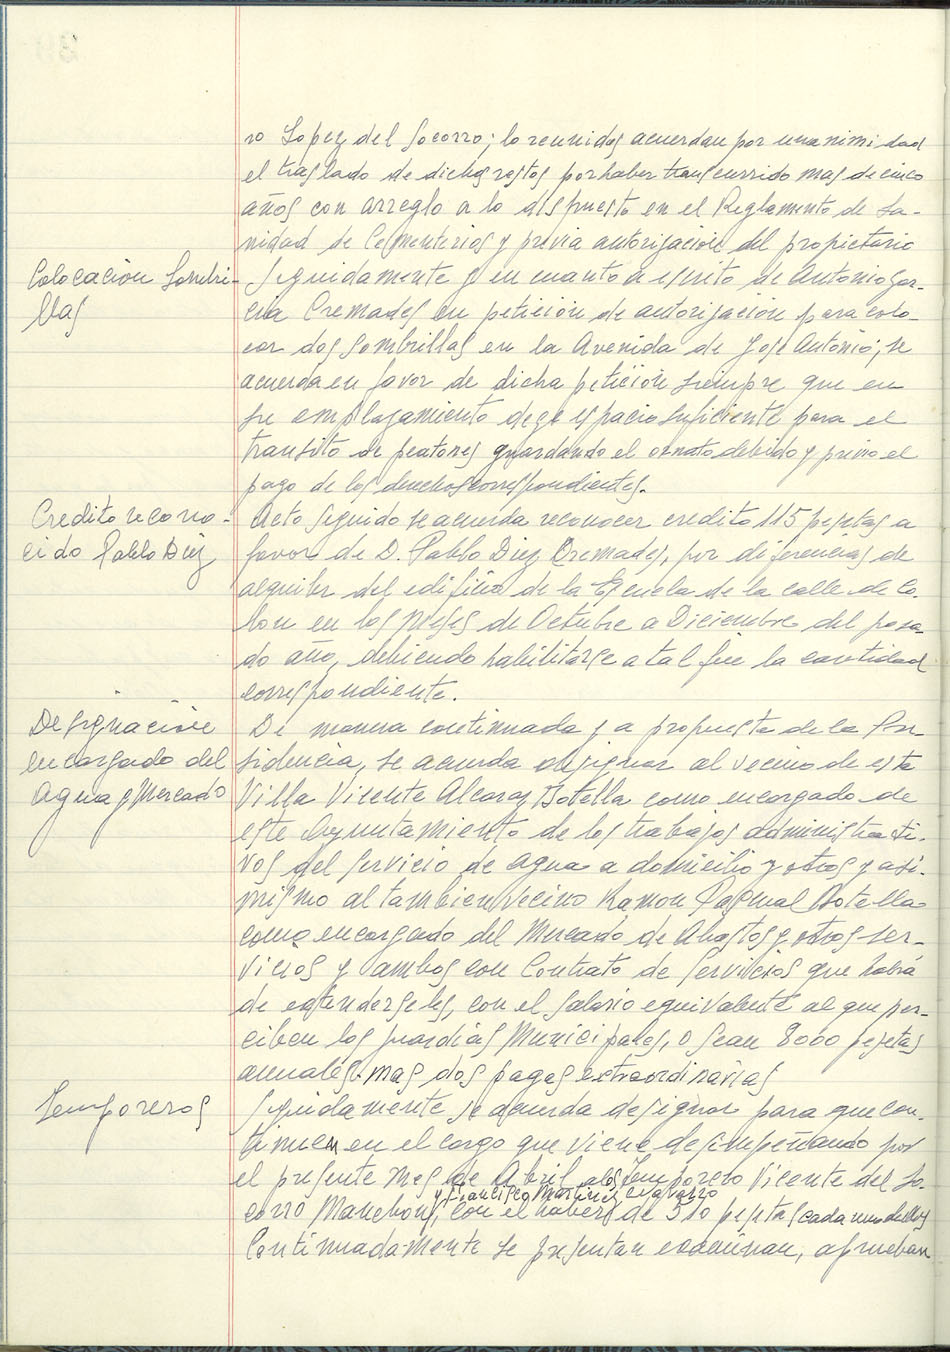 ro Lopez del Socorro; lo reunidos acuerdan por unanimidad
el traslado de dichos restos por haber transcurrido mas de cinco
años con arreglo a lo dispuesto en el Reglamento de Sa-
nidad de Cementerios y previa autorización del propietario
Colocación Sombri-
llas
Seguidamente y en cuanto a escrito de Antonio Gar-
cia Cremades en petición de autorización para colo-
car dos sombrillas en la Avenida de Jose Antonio; se
acuerda en favor de dicha petición siempre que en
su emplazamiento dege espacio suficiente para el
transito de peatones guardando el ornato debido y previo el
pago de los derechos correspondientes.
Credito recono-
cido Pablo Diez
Acto seguido se acuerda reconocer credito 115 pesetas a
favor de D. Pablo Diez Cremades, por diferencias de
alquiler del edificio de la Escuela de la calle de Co-
lon en los meses de Octubre a Diciembre del pasa-
do año, debiendo habilitarse a tal fin la cantidad
correspondiente.
Designación
encargado del
Agua y Mercado
De manera continuada y a propuesta de la Pre
sidencia, se acuerda designar al vecino de esta
Villa Vicente Alcaraz Botella como encargado de
este Ayuntamiento de los trabajos administrati-
vos del servicio de agua a domicilio y otros y asi-
mismo al tambien vecino Ramon Pascual Botella
como encargado del Mercado de Abastos y otros ser-
vicios y ambos con Contrato de Servicios que habrá
de extenderseles, con el salario equivalente al que per-
ciben los guardias Municipales, o sean 8000 pesetas
anuales mas dos pagas extraordinarias
Temporeros
Seguidamente se acuerda designar para que con-
tinuen en el cargo que viene desempeñando por
el presente mes de Abril, a los Temporero Vicente del So-
y Francisco Martinez
corro Manchon, con el haber de 510 pesetas cada uno de ellos
Continuadamente se presentan examinan, aprueban